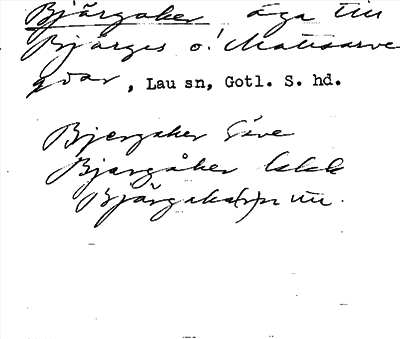 Bjärgaker äga till
Bjärges o. Matisarve
gdar, Lau sn, Gotl. S. hd.
Bjergaker Säve
Bjargåker
Bjärgaka(r)n